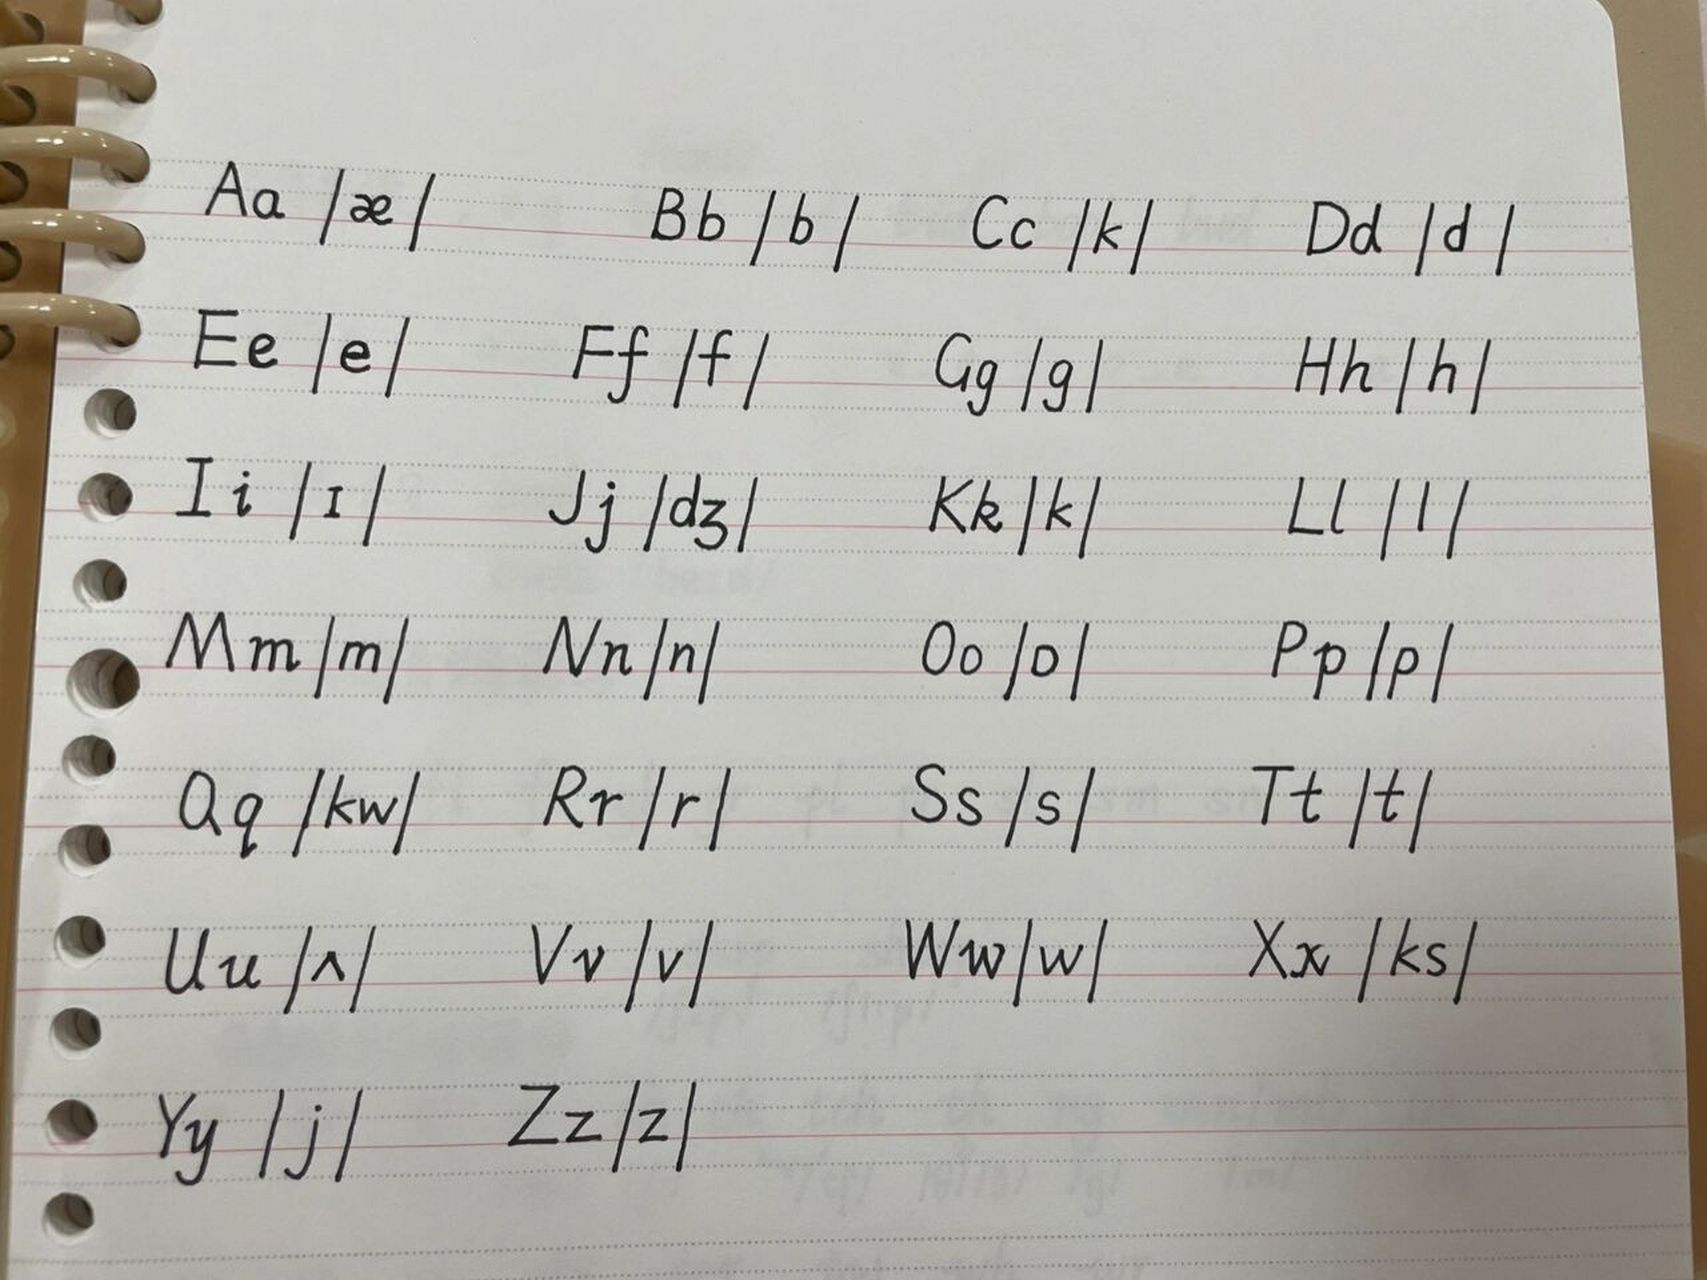 Aa /æ/ Bb /b/ Cc /k/ Dd /d/
Ee /e/ Ff /f/ Gg /g/ Hh /h/
Ii /ɪ/ Jj /dʒ/ Kk /k/ Ll /l/
Mm /m/ Nn /n/ Oo /ɒ/ Pp /p/
Qq /kw/ Rr /r/ Ss /s/ Tt /t/
Uu /ʌ/ Vv /v/ Ww /w/ Xx /ks/
Yy /j/ Zz /z/